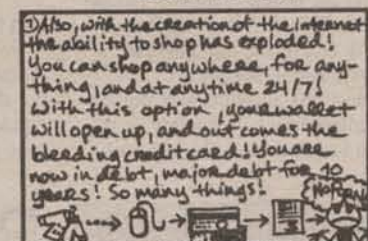 ① Also, with the creation of the internet
the ability to shop has exploded!
You can shop anywhere, for any-
thing, and at anytime 24/7!
With this option, your wallet
will open up, and out comes the
bleeding credit card! You are
now in debt, major debt for 10
years! So many things!